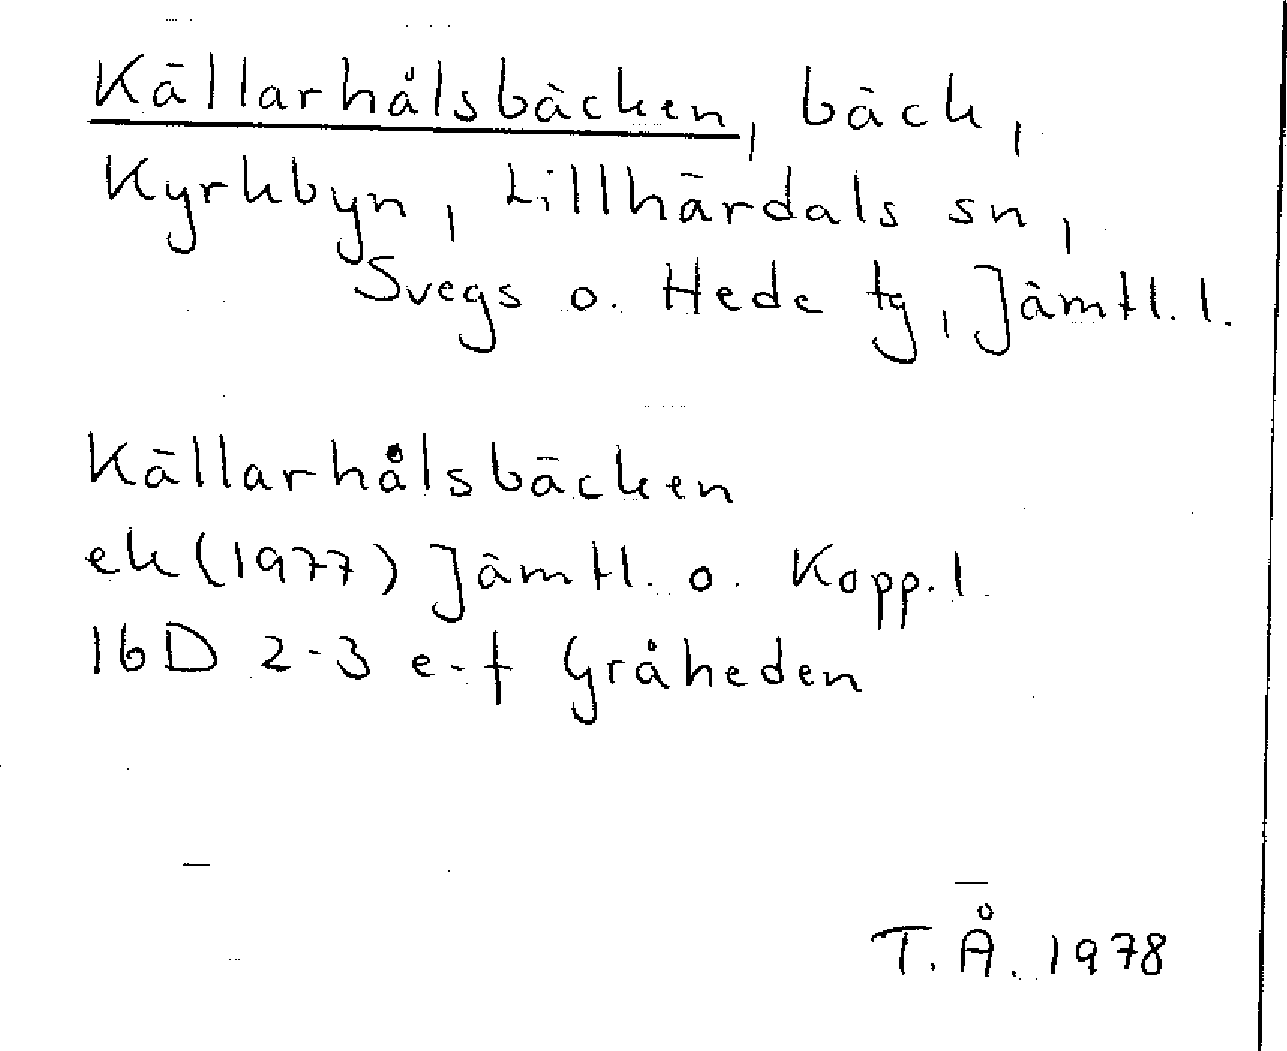 Källarhålsbäcken, bäck,
Kyrkbyn, Lillhärdals sn,
Svegs o. Hede tg, Jämtl. l.
Källarhålsbäcken
ek (1977) Jämtl. o. Kopp. l.
16D 2-3 e-f Gråheden
T. Å. 1978